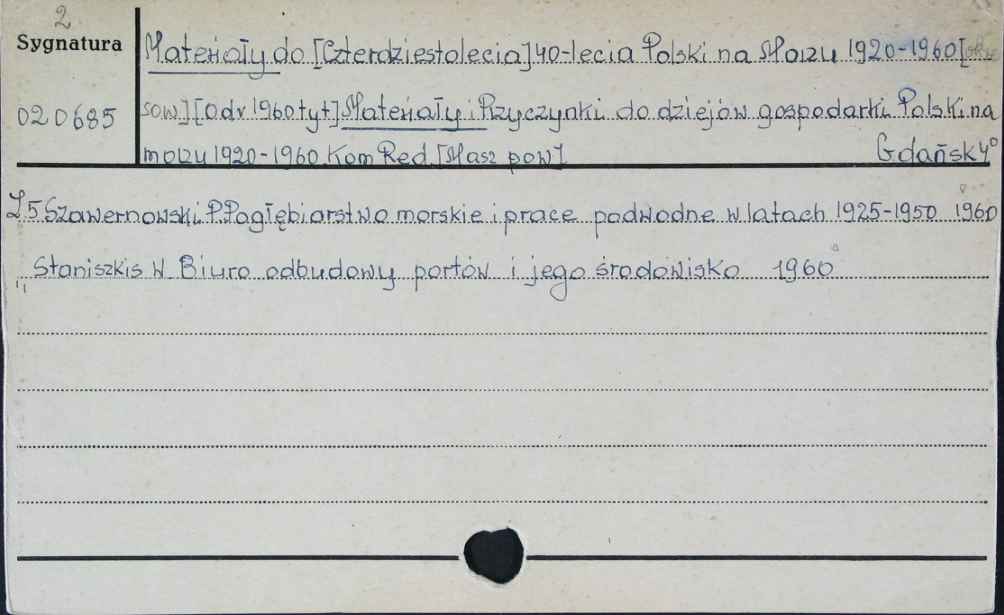 2
Sygnatura
020685
Materiały do [Czterdziestolecia] 40-lecia Polski na Morzu 1920-1960 [
sow] [Od r 1960 tyt] Materiały i Przyczynki do dziejów gospodarki Polski na
morzu 1920-1960 Kom Red. [Masz pow]
Gdańsk 4°
Z 5 Szawernowski P. Pogłębiarstwo morskie i prace podwodne w latach 1925-1950 1960
" Staniszkis W Biuro odbudowy portów i jego środowisko 1960